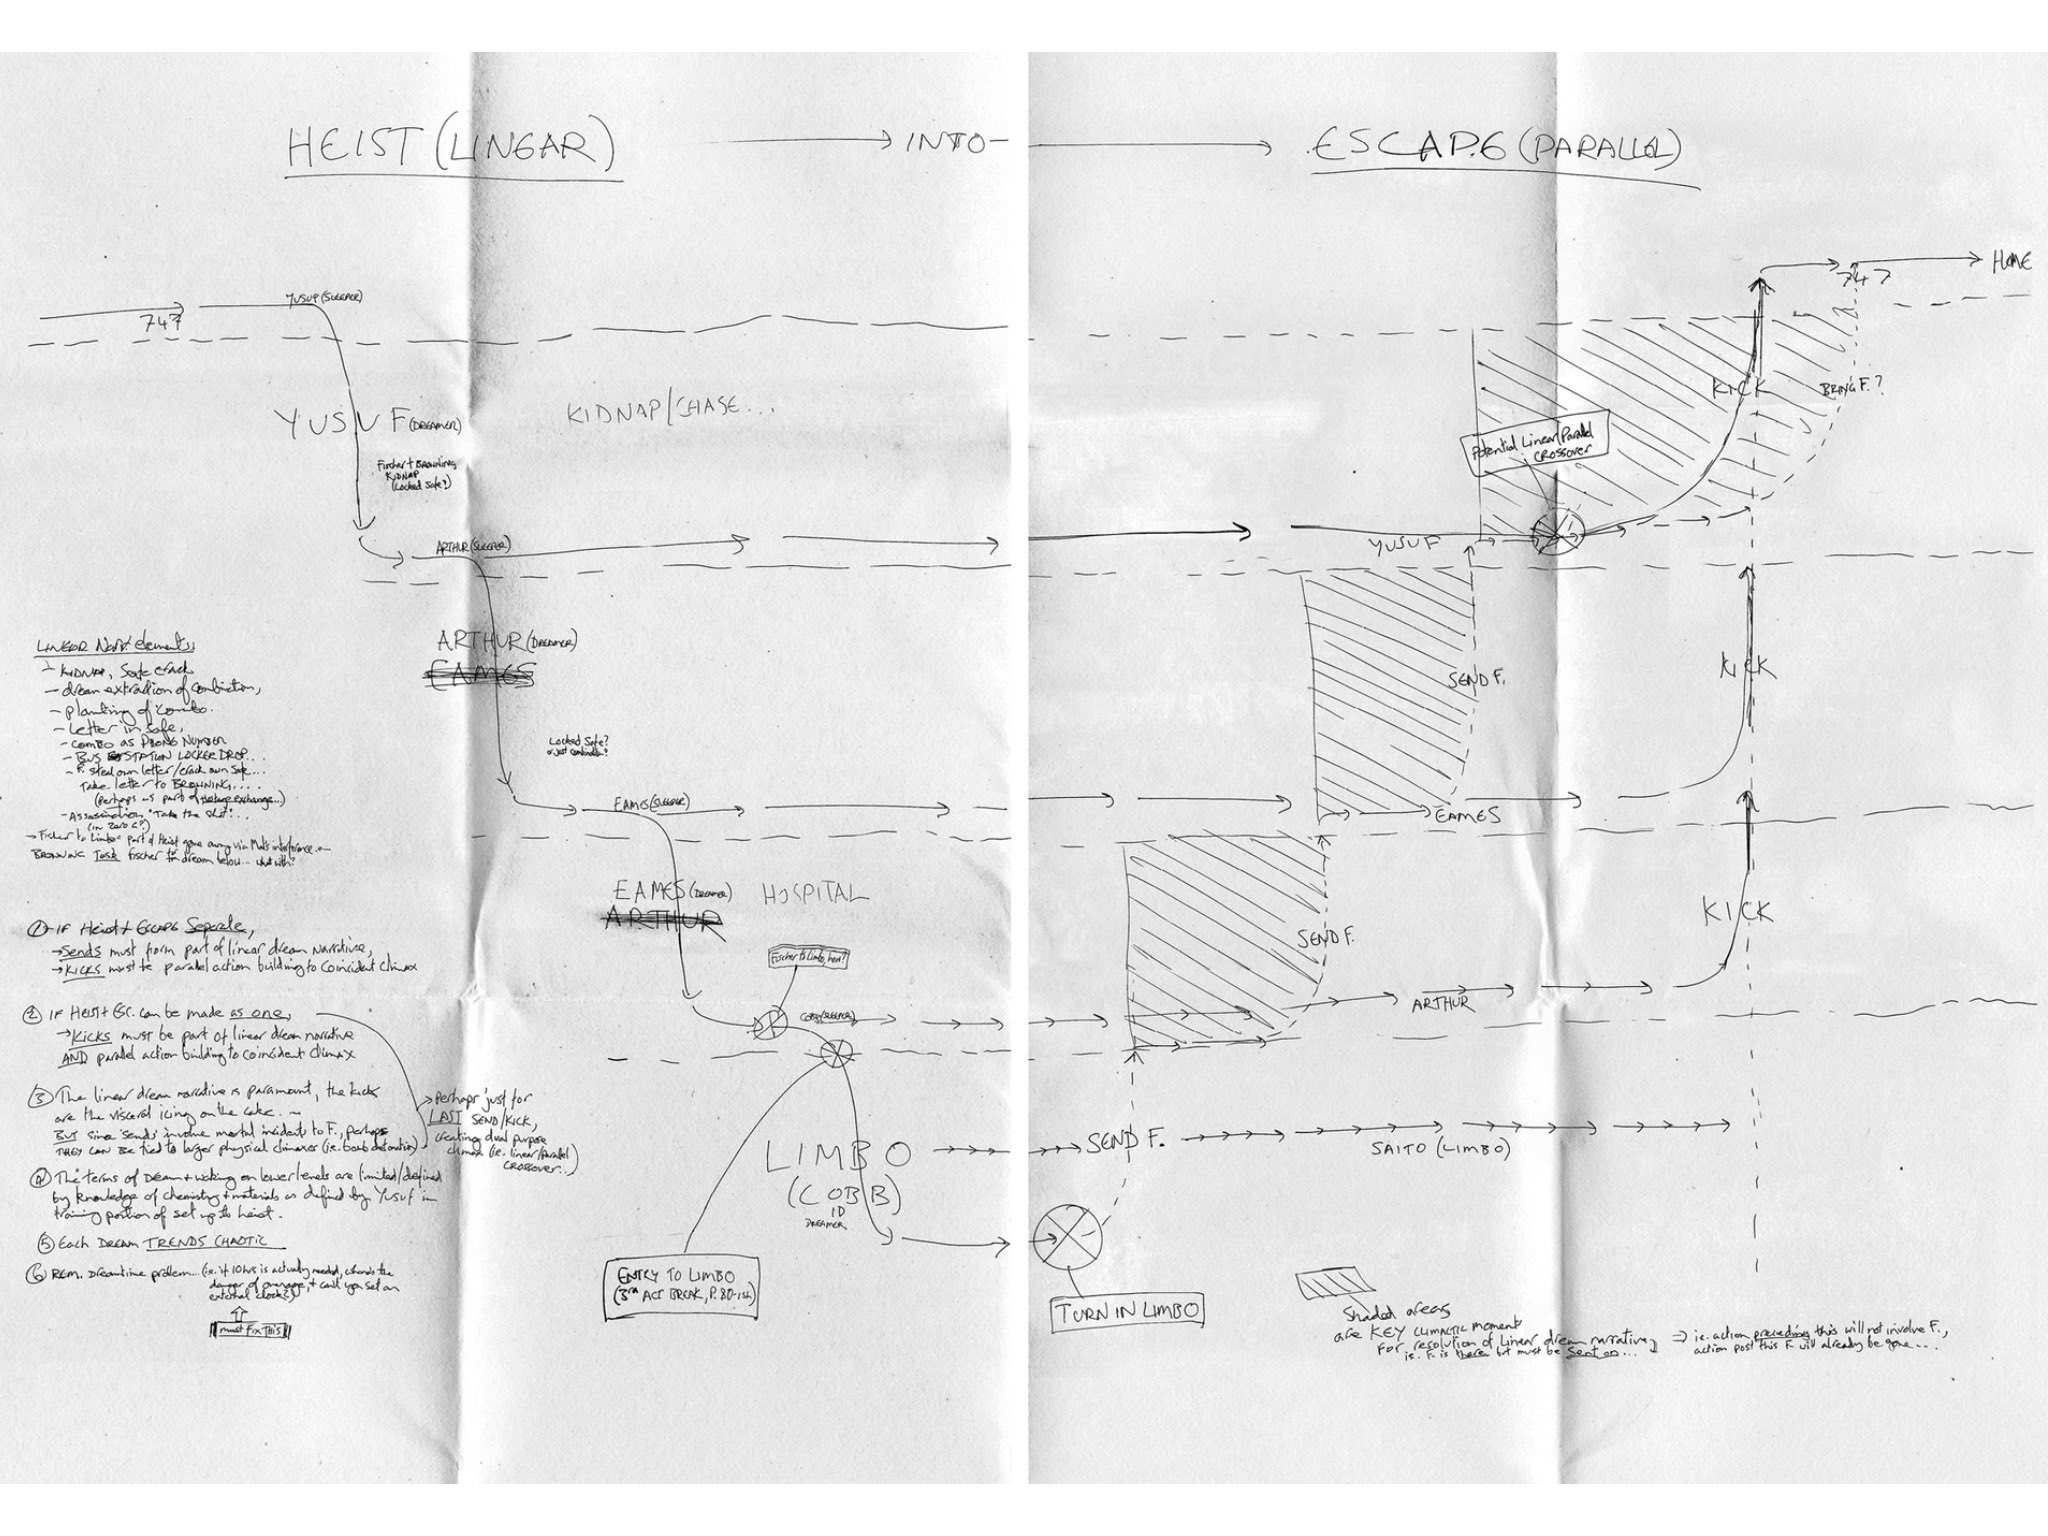 HEIST (LINEAR)
INTO-
ESCAPE (PARALLEL)
747
YUSUF (SLEEPER)
747
HOME
YUSUF (DREAMER)
KIDNAP/CHASE...
KICK
BRING F.?
Fischer + BROWNING
KIDNAP
(Locked Safe?)
Potential Linear/Parallel
CROSSOVER
ARTHUR (SLEEPER)
YUSUF
ARTHUR (DREAMER)
EAMES
SEND F.
KICK
Locked Safe?
or just combination?
LINEAR Narr. elements:
- KIDNAP, Safe crack
- dream extraction of combination,
- planting of combo.
- Letter in safe,
- COMBO as PHONE NUMBER
- BUS STATION LOCKER DROP...
- F. steal own letter/crack own safe...
Take letter to BROWNING....
(perhaps as part of hostage exchange...)
- Assassination "Take the shot"...
(in Zero G?)
→ Fischer to Limbo = part of Heist gone awry via Mal's interference
BROWNING Task Fischer for dream below... what with?
EAMES (SLEEPER)
EAMES
EAMES (DREAMER)
ARTHUR
HOSPITAL
SEND F.
KICK
Fischer to Limbo, here?
COBB (SLEEPER)
ARTHUR
① IF Heist + ESCAPE Separate,
→ Sends must form part of linear dream narrative,
→ KICKS must be parallel action building to Coincident Climax
② IF HEIST + ESC. can be made as one,
→ KICKS must be part of linear dream narrative
AND parallel action building to Coincident Climax
③ The linear dream narrative is paramount, the kicks
are the visceral icing on the cake. –
BUT since 'sends' involve mortal incidents to F., perhaps
THEY CAN BE tied to larger physical climaxes (i.e. bomb detonation)
→ Perhaps just for
LAST SEND/KICK,
creating dual purpose
climax (i.e. linear/parallel
CROSSOVER..)
④ The terms of Dream + waking on lower levels are limited/defined
by knowledge of chemistry + materials as defined by Yusuf in
training portion of set up to heist.
⑤ Each DREAM TRENDS CHAOTIC
⑥ REM. Dreamtime problem... (i.e. if 10 hrs is actually needed, where's the
danger of overage, + can't you set an
external clock?)
must Fix This
LIMBO
(COBB)
ID
DREAMER
SEND F.
SAITO (LIMBO)
ENTRY TO LIMBO
(3RD ACT BREAK, P. 80-ish)
TURN IN LIMBO
Shaded areas
are KEY CLIMACTIC moments
FOR resolution of Linear dream narrative,
i.e. F. is there but must be sent on...
⇒ i.e. action preceding this will not involve F.,
action post this F. will already be gone....